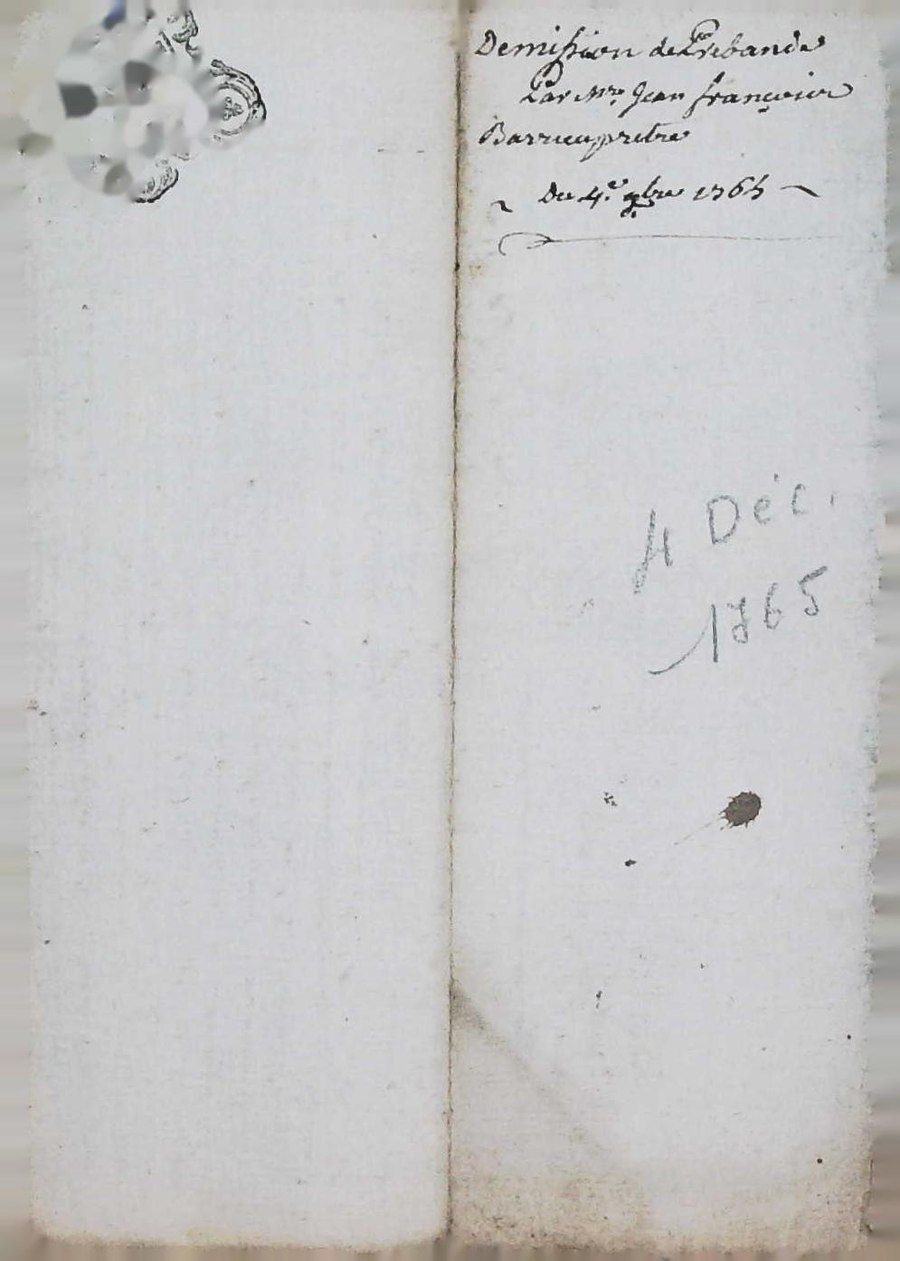 Demission de Prebande
Par Mre Jean françois
Barrieu pretre
Du 4e xbre 1765
4 Déc.
1765